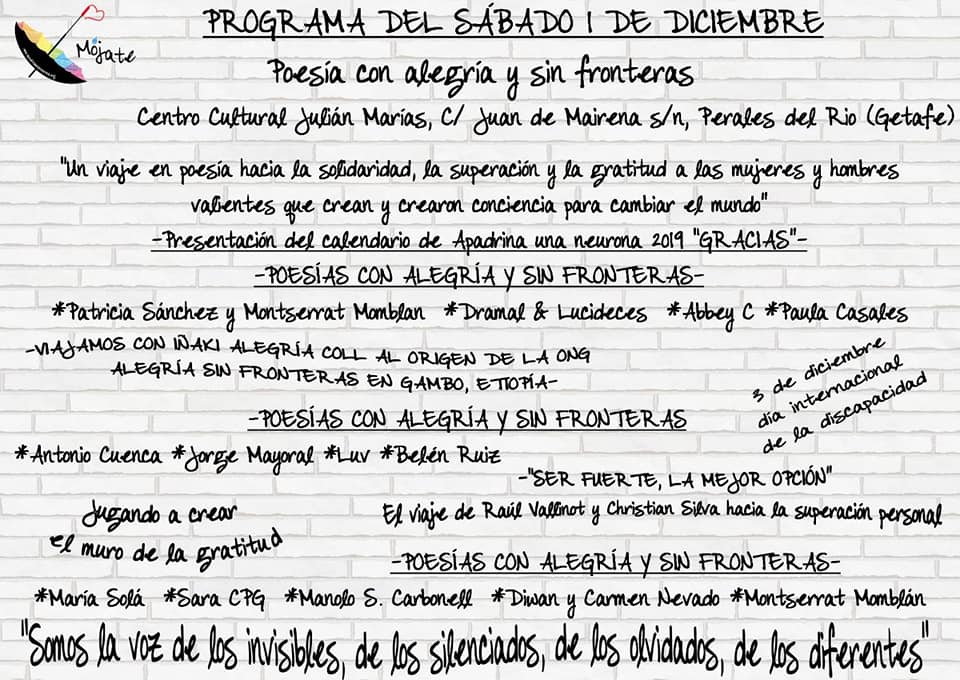 Mójate
PROGRAMA DEL SÁBADO 1 DE DICIEMBRE
Poesía con alegría y sin fronteras
Centro Cultural Julián Marías, C/ Juan de Mairena s/n, Perales del Rio (Getafe)
"Un viaje en poesía hacia la solidaridad, la superación y la gratitud a las mujeres y hombres
valientes que crean y crearon conciencia para cambiar el mundo"
-Presentación del calendario de Apadrina una neurona 2019 "GRACIAS"-
-POESÍAS CON ALEGRÍA Y SIN FRONTERAS-
*Patricia Sánchez y Montserrat Momblan *Dramal & Lucideces *Abbey C *Paula Casales
-VIAJAMOS CON IÑAKI ALEGRÍA COLL AL ORIGEN DE LA ONG
ALEGRÍA SIN FRONTERAS EN GAMBO, ETIOPÍA-
3 de diciembre
día internacional
de la discapacidad
-POESÍAS CON ALEGRÍA Y SIN FRONTERAS
*Antonio Cuenca *Jorge Mayoral *Luv *Belén Ruiz
-"SER FUERTE, LA MEJOR OPCIÓN"
El viaje de Raúl Vallinot y Christian Silva hacia la superación personal
Jugando a crear
el muro de la gratitud
-POESÍAS CON ALEGRÍA Y SIN FRONTERAS-
*María Solá *Sara CPG *Manolo S. Carbonell *Diwan y Carmen Nevado *Montserrat Momblán
"Somos la voz de los invisibles, de los silenciados, de los olvidados, de los diferentes"